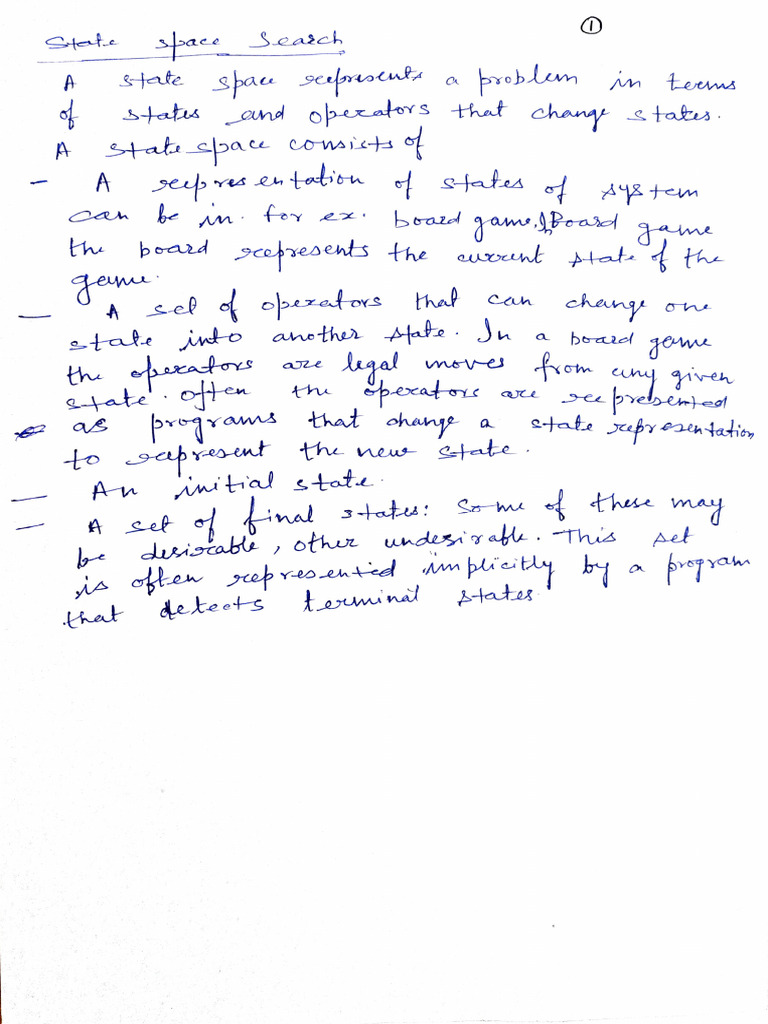 ①
State space Search
A state space represents a problem in terms
of states and operators that change states.
A state space consists of
- A representation of states of system
can be in. for ex. board game, In Board game
the board represents the current state of the
game.
- A set of operators that can change one
state into another state. In a board game
the operators are legal moves from any given
state. often the operators are represented
as programs that change a state representation
to represent the new state.
- An initial state.
- A set of final states: Some of these may
be desirable, other undesirable. This set
is often represented implicitly by a program
that detects terminal states.